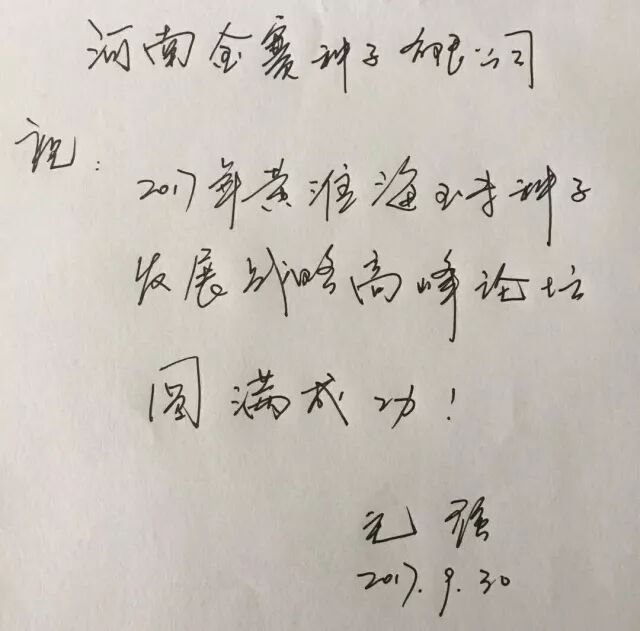 河南金赛种子有限公司
祝:
2017年黄淮海玉米种子
发展战略高峰论坛
圆满成功!
元强
2017.9.30